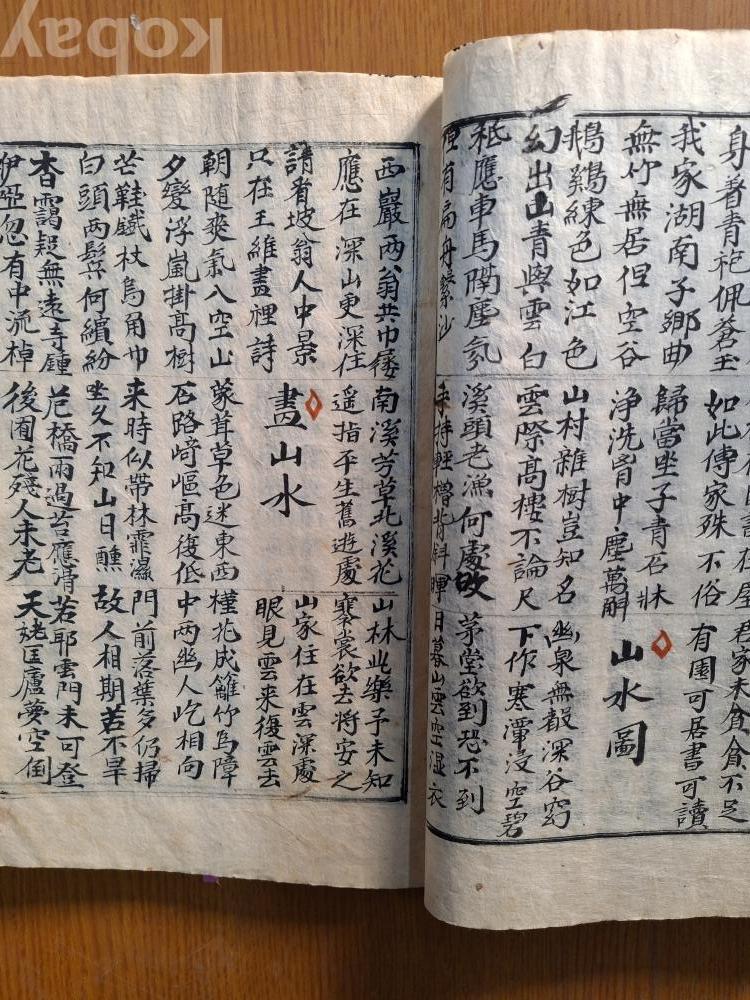 身着青袍佩蒼玉
如此傳家殊不俗
君家未貧貧不足
我家湖南子鄉曲
無竹無居但空谷
歸當坐子青石牀
浄洗胷中塵萬斛
有園可居書可讀
山水圖
鵝鶏練色如江色
幻出山青與雲白
山村雜樹豈知名
雲際高樓不論尺
幽泉無聲深谷窈
下作寒潭浸空碧
秪應車馬隔塵氛
但有扁舟繫沙
溪頭老漁何處收
手持輕櫓背斜曛
茅堂欲到恐不到
日暮山雲空湿衣
西巖兩翁共巾屨
應在深山更深住
南溪芳草北溪花
遙指平生舊遊處
山林此樂予未知
褰裳欲去將安之
請看坡翁人中景
只在王維畫裡詩
畫山水
山家住在雲深處
眼見雲来復雲去
朝随爽氣入空山
夕變浮嵐掛髙樹
蒙茸草色迷東西
石路崎嶇髙復低
槿花成籬竹為障
中両幽人屹相向
芒鞋鐵杖烏角巾
白頭両鬂何繽紛
来時似帶林霏濕
坐久不知山日醺
門前落葉多仍掃
故人相期若不早
杳靄疑無遠寺鍾
伊啞忽有中流棹
危橋雨過苔應滑
後囿花殘人未老
若耶雲門未可登
天姥匡廬夢空倒
kobay